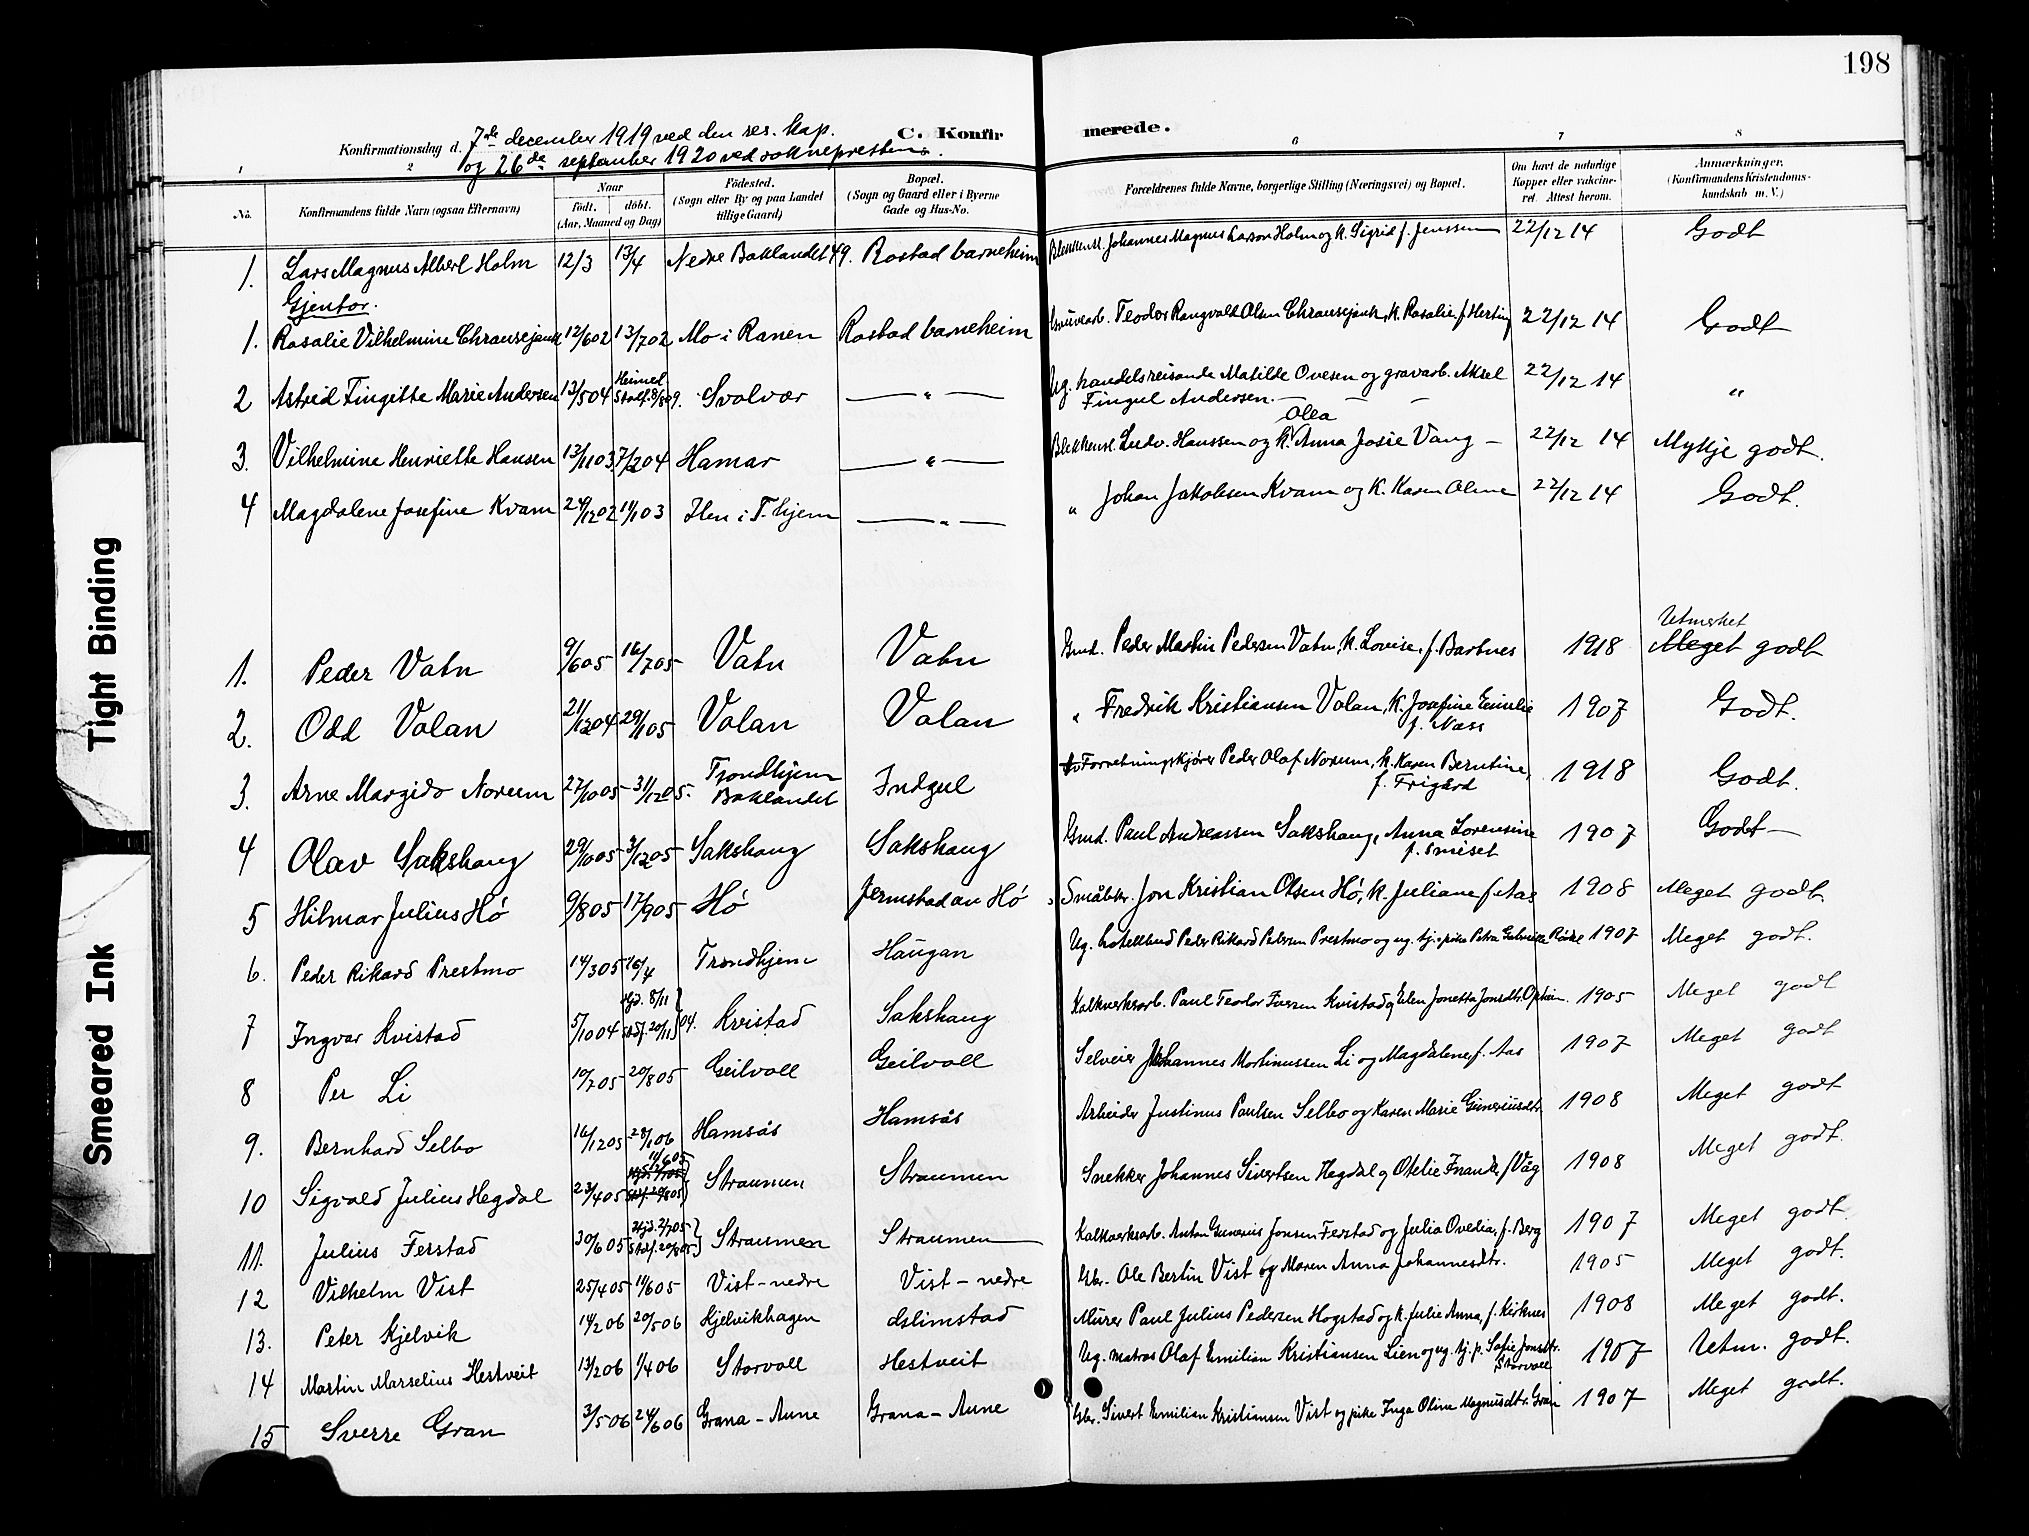 198
7de december 1919 ved den res. kap.
C. Konfirmerede.
Konfirmationsdag d. og 26de september 1920 ved soknepresten.
1 2 6 7 8
No. Konfirmandens fulde Navn (ogsaa Efternavn) Naar født. døbt. (Aar, Maaned og Dag) Fødested. (Sogn eller By og paa Landet tillige Gaard) Bopæl. (Sogn og Gaard eller i Byerne Gade og Hus-No. Forældrenes fulde Navne, borgerlige Stilling (Næringsvei) og Bopæl. Om havt de naturlige Kopper eller vakcineret. Attest herom. Anmærkninger. (Konfirmandens Kristendomskundskab m. V.)
1. Lars Magnus Albert Holm 12/3 13/4 Nedre Baklandet 49. Rostad barneheim Blikkensl. Johannes Magnus Larson Holm og k. Sigrid f. Jenssen 22/12 14 Godt
Gjentor.
1. Rosalie Vilhelmine Chransejank 12/602 13/702 Mo i Ranen Rostad barneheim Gruvearb. Teodor Rangvald Olsen Chransejank, k. Rosalie f. Herting 22/12 14 Godt
2 Astrid Fingitte Marie Andersen 13/504 Heimed. Stadf. 8/809. Svolvær — " — Ug. handelsreisande Matilde Ovesen og gravarb. Aksel Fingul Andersen. 22/12 14 "
3. Vilhelmine Henriette Hansen 13/1103 7/204 Hamar — " — Blikkensl. Ludv. Hanssen og k. Olea Anna Josie Vang — 22/12 14 Mykje godt.
4 Magdalene Josefine Kvam 24/1202 11/103 Hen i T.hjem — " — " Johan Jakobsen Kvam og k. Karen Oline 22/12 14 Godt.
1. Peder Vatn 9/605 16/705 Vatn Vatn Gmd. Peder Martin Pedersen Vatn, k. Lovise, f. Bartnes 1918 Utmerket Meget godt
2. Odd Volan 21/1204 29/105 Volan Volan " Fredrik Kristiansen Volan, k. Josefine Emilie f. Næss 1907 Godt.
3. Arne Margido Norum 27/1005 31/1205. Trondhjem Baklandet Indgul Forretningskjører Peder Olaf Norum, k. Karen Berntine, f. Frigård 1918 Godt.
4 Olav Sakshaug 29/1005 3/1205 Sakshaug Sakshaug Gmd. Paul Andreassen Sakshaug, Anna Lorensine f. Småset 1907 Godt —
5 Hilmar Julius Hó 9/805 17/905 Hó Jermstad an Hó Småbkr. Jon Kristian Olsen Hó, k. Juliane f. Aas 1908 Meget godt
6. Peder Rikard Prestmo 14/305 16/4 Trondhjem Haugan Ug. hotellbud Peder Rikard Pedersen Prestmo og ug. tj.pike Petra Gabriella 1907 Meget godt.
7 Ingvar Kvistad 5/1004 Hjd. 8/11 Stdf. 20/11 } 04. Kvistad Sakshaug Kalkverksarb. Paul Teodor Iversen Kvistad og Elen Jonetta Jonsdtr. 1905 Meget godt
8 Per Li 10/705 20/805 Geilvoll Geilvoll Selveier Johannes Martinussen Li og Magdalene, f. Aas 1907 Meget godt
9. Bernhard Selbo 16/1205 28/106 Hamsås Hamsås Arbeider Justinus Paulsen Selbo og Karen Marie Guneriusdtr. 1908 Meget godt
10 Sigvald Julius Hegdal 23/405 11/605 Straumen Straumen Snekker Johannes Sivertsen Hegdal og Otelie f. Våg 1908 Meget godt.
11. Julius Ferstad 30/605 Hjd. 2/705 Stdf. 20/805 } Straumen Straumen Kalkverksarb. Anton Gunerius Jonsen Ferstad og Julia Ovedia, f. Berg 1907 Meget godt.
12 Vilhelm Vist 25/405 11/605 Vist-nedre Vist-nedre Gbr. Ole Bertin Vist og Maren Anna Johannesdtr. 1905 Meget godt.
13. Peter Kjelvik 14/206 20/506 Kjelvikhagen Aslimstad Murer Paul Julius Pedersen Hogstad og k. Julie Anna, f. Kirknes 1908 Meget godt.
14 Martin Marselius Hestveit 13/206 1/406 Storvoll Hestveit Ug. matros Olaf Emilian Kristiansen Lien og ug. tj. p. Sofie Jonsdtr. Storvoll 1907 Utm. godt.
15 Sverre Gran 3/506 24/606 Grana-Aune Grana-Aune Gbr. Sivert Emilian Kristiansen Vist og pike Inga Oline Magnusdtr. Gran 1907 Meget godt.
Tight Binding
Smeared Ink